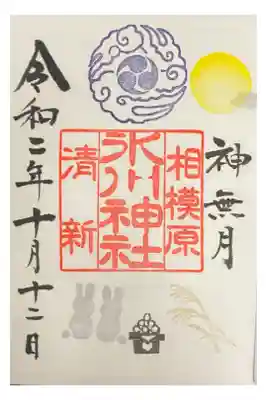 神無月
相模原
氷川神社
清新
令和二年十月十二日